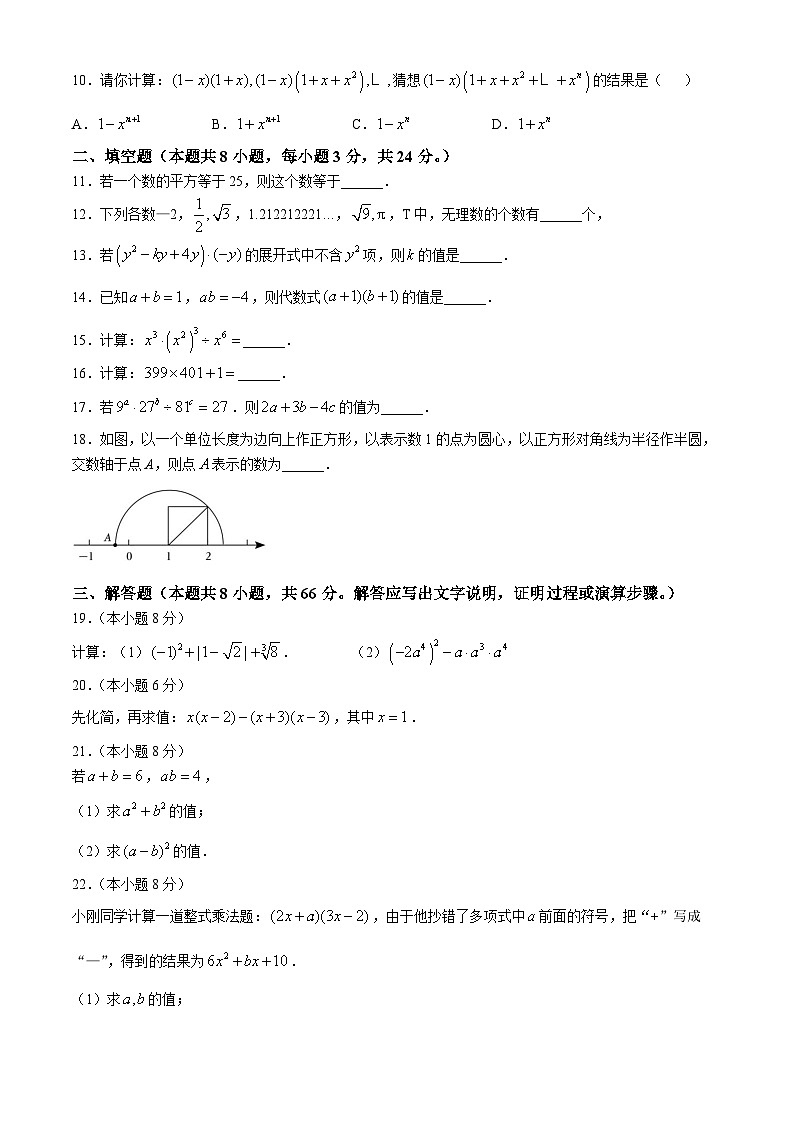 10．请你计算：(1−x)(1+x),(1−x)(1+x+x²),L ,猜想(1−x)(1+x+x²+L +xⁿ)的结果是（ ）
A．1−xⁿ⁺¹ B．1+xⁿ⁺¹ C．1−xⁿ D．1+xⁿ
二、填空题（本题共 8 小题，每小题 3 分，共 24 分。）
11．若一个数的平方等于 25，则这个数等于______．
12．下列各数—2，1/2,√3，1.212212221…，√9,π，T 中，无理数的个数有______个，
13．若(y²−ky+4y)·(−y)的展开式中不含y²项，则k的值是______．
14．已知a+b=1，ab=−4，则代数式(a+1)(b+1)的值是______．
15．计算：x³·(x²)³÷x⁶=______．
16．计算：399×401+1=______．
17．若9ᵃ·27ᵇ÷81ᶜ=27．则2a+3b−4c的值为______．
18．如图，以一个单位长度为边向上作正方形，以表示数 1 的点为圆心，以正方形对角线为半径作半圆，
交数轴于点 A，则点 A 表示的数为______．
A
−1 0 1 2
三、解答题（本题共 8 小题，共 66 分。解答应写出文字说明，证明过程或演算步骤。）
19．（本小题 8 分）
计算：（1）(−1)²+|1−√2|+∛8． （2）(−2a⁴)²−a·a³·a⁴
20．（本小题 6 分）
先化简，再求值：x(x−2)−(x+3)(x−3)，其中x=1．
21．（本小题 8 分）
若a+b=6，ab=4，
（1）求a²+b²的值；
（2）求(a−b)²的值．
22．（本小题 8 分）
小刚同学计算一道整式乘法题：(2x+a)(3x−2)，由于他抄错了多项式中a前面的符号，把“+”写成
“—”，得到的结果为6x²+bx+10．
（1）求a,b的值；